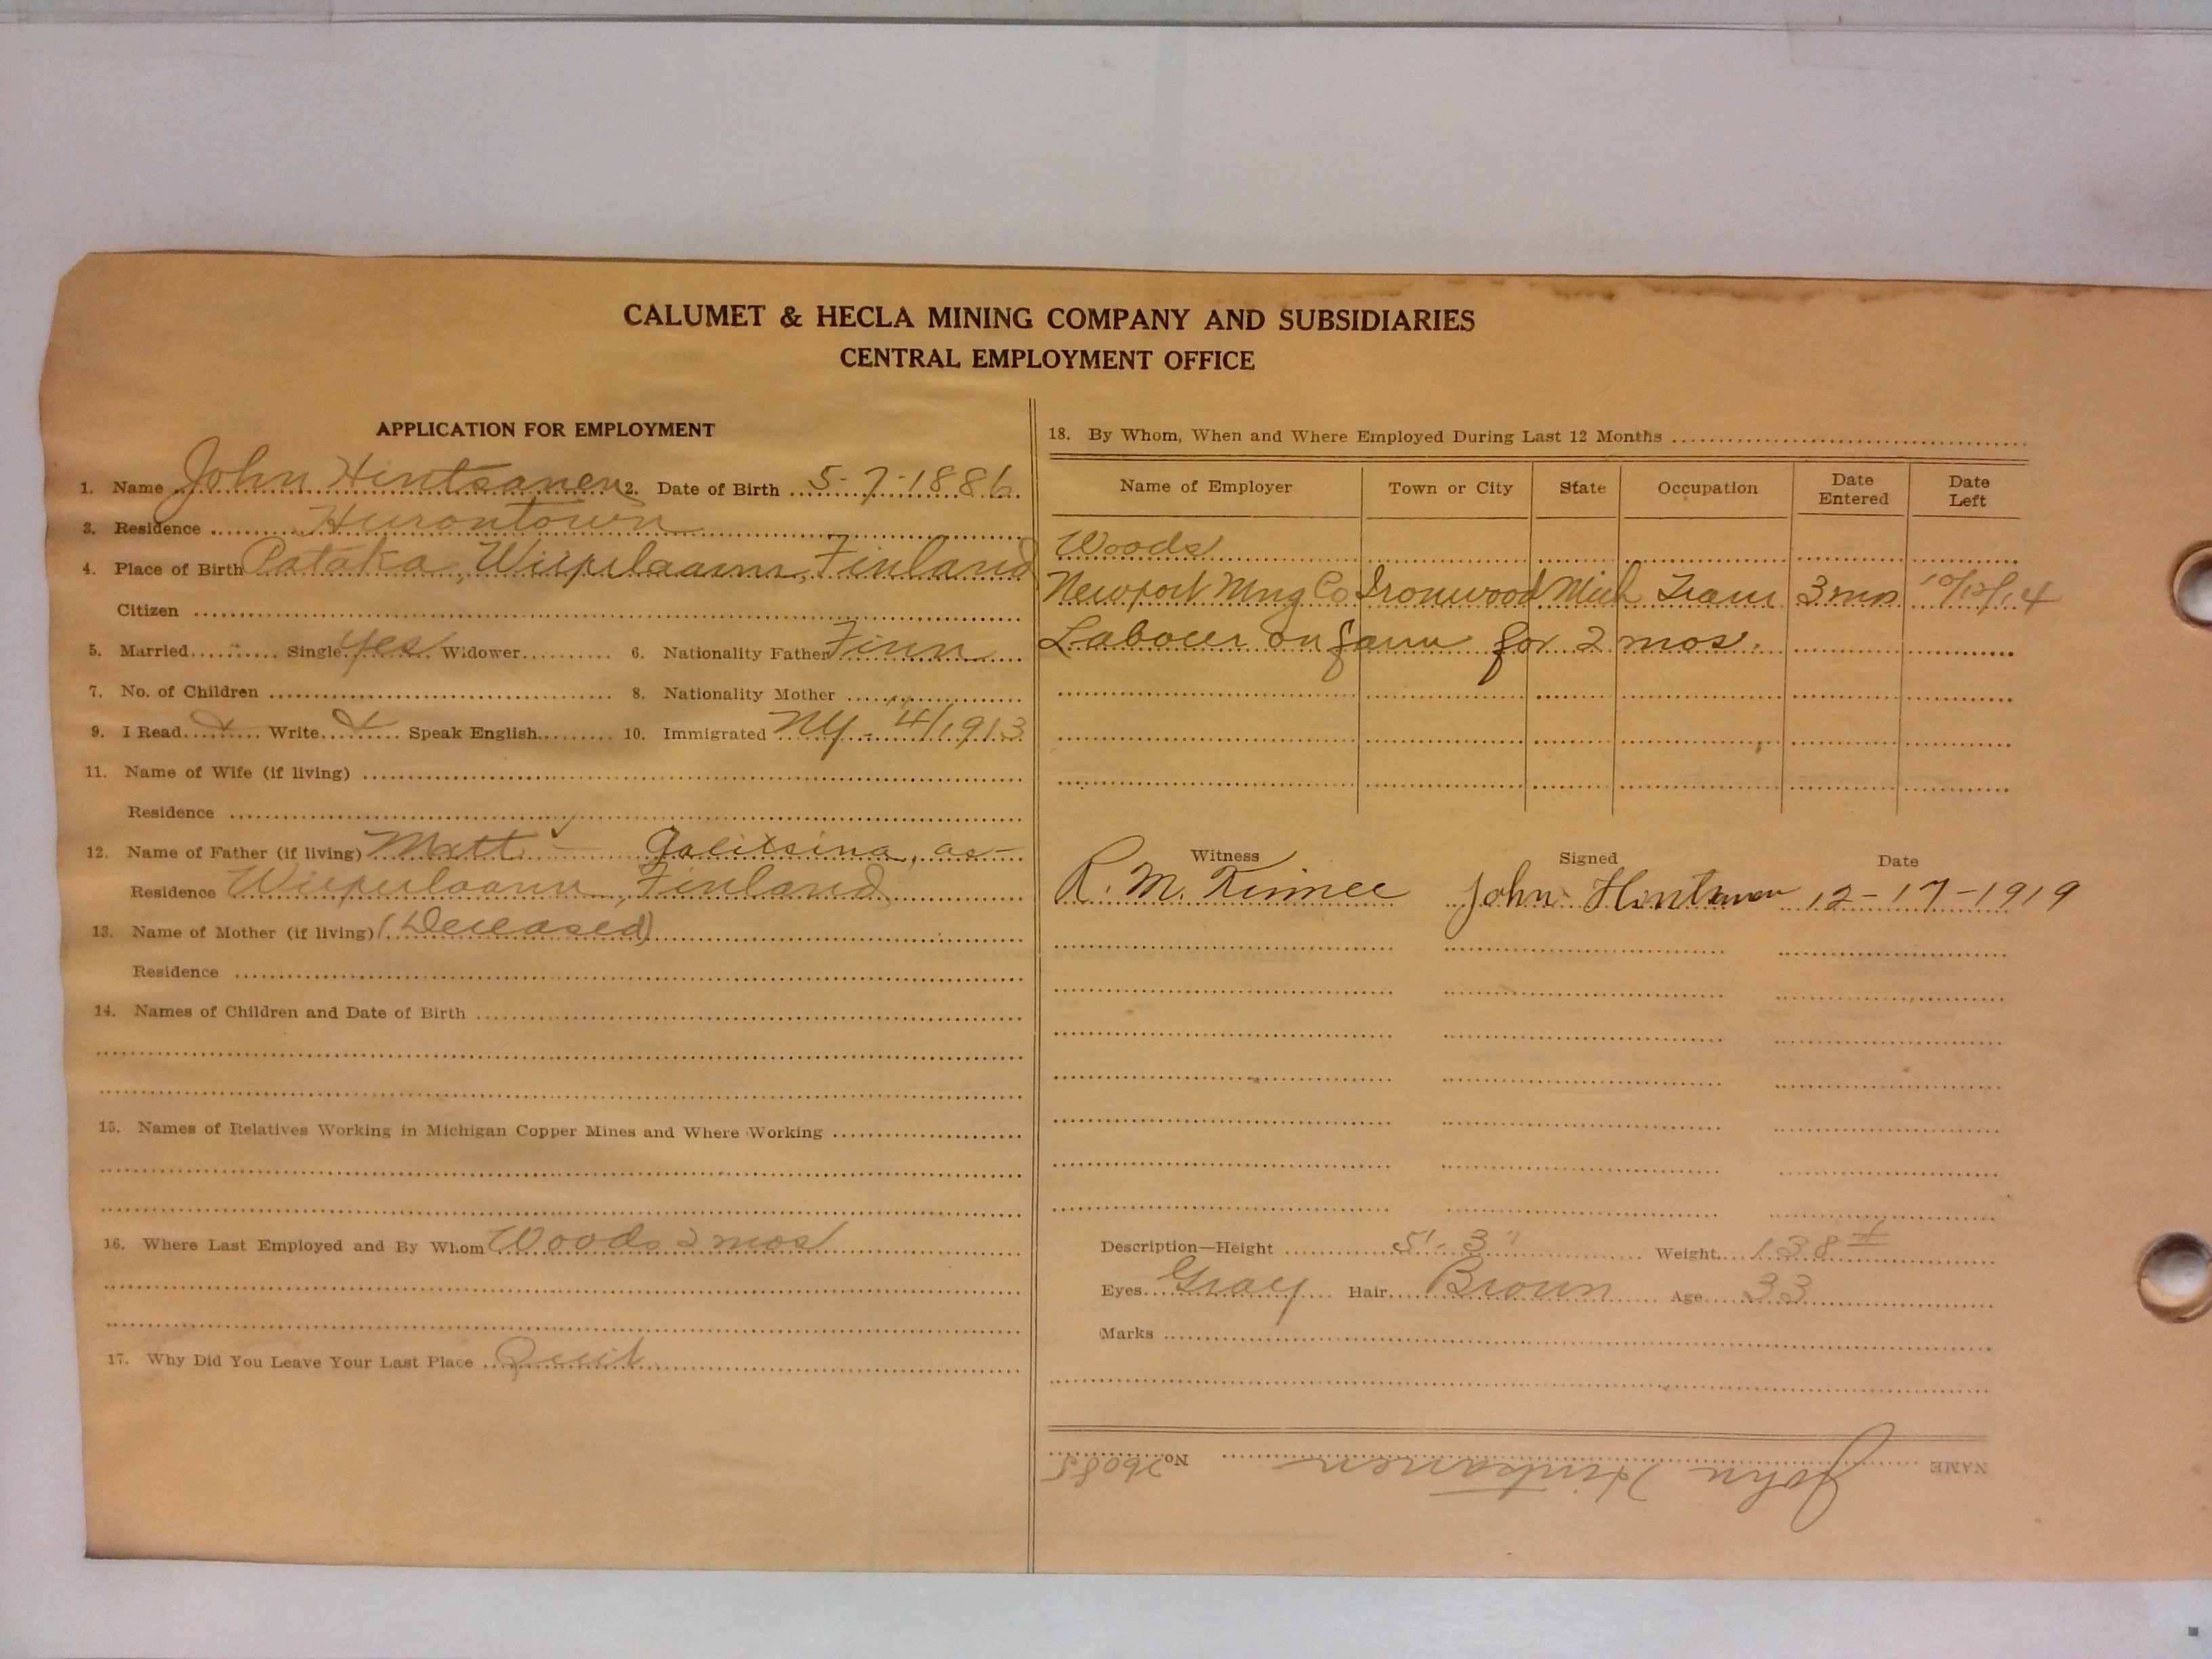 CALUMET & HECLA MINING COMPANY AND SUBSIDIARIES
CENTRAL EMPLOYMENT OFFICE
APPLICATION FOR EMPLOYMENT
1. Name John Hintsanen 2. Date of Birth 5-7-1886
3. Residence Hurontown
4. Place of Birth Pataka, Wiipulaanni, Finland
Citizen
5. Married Single yes Widower 6. Nationality Father Finn
7. No. of Children 8. Nationality Mother "
9. I Read x Write x Speak English 10. Immigrated NY - 4/1913
11. Name of Wife (if living)
Residence
12. Name of Father (if living) Matt - as-
Residence Wiipulaann, Finland
13. Name of Mother (if living) (Deceased)
Residence
14. Names of Children and Date of Birth
15. Names of Relatives Working in Michigan Copper Mines and Where Working
16. Where Last Employed and By Whom Woods 2 mos
17. Why Did You Leave Your Last Place Quit
18. By Whom, When and Where Employed During Last 12 Months
Name of Employer Town or City State Occupation Date Entered Date Left
Woods
Newport Mng Co Ironwood Mich Tram 3 mos 10/12/14
Labour on farm for 2 mos.
Witness Signed Date
R. M. Kinnee John Hintsanen 12-17-1919
Description—Height 5'-3" Weight 138#
Eyes Gray Hair Brown Age 33
Marks
NAME John Hintsanen No. 26085